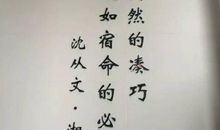 然的凑巧
如宿命的必
沈从文·湘